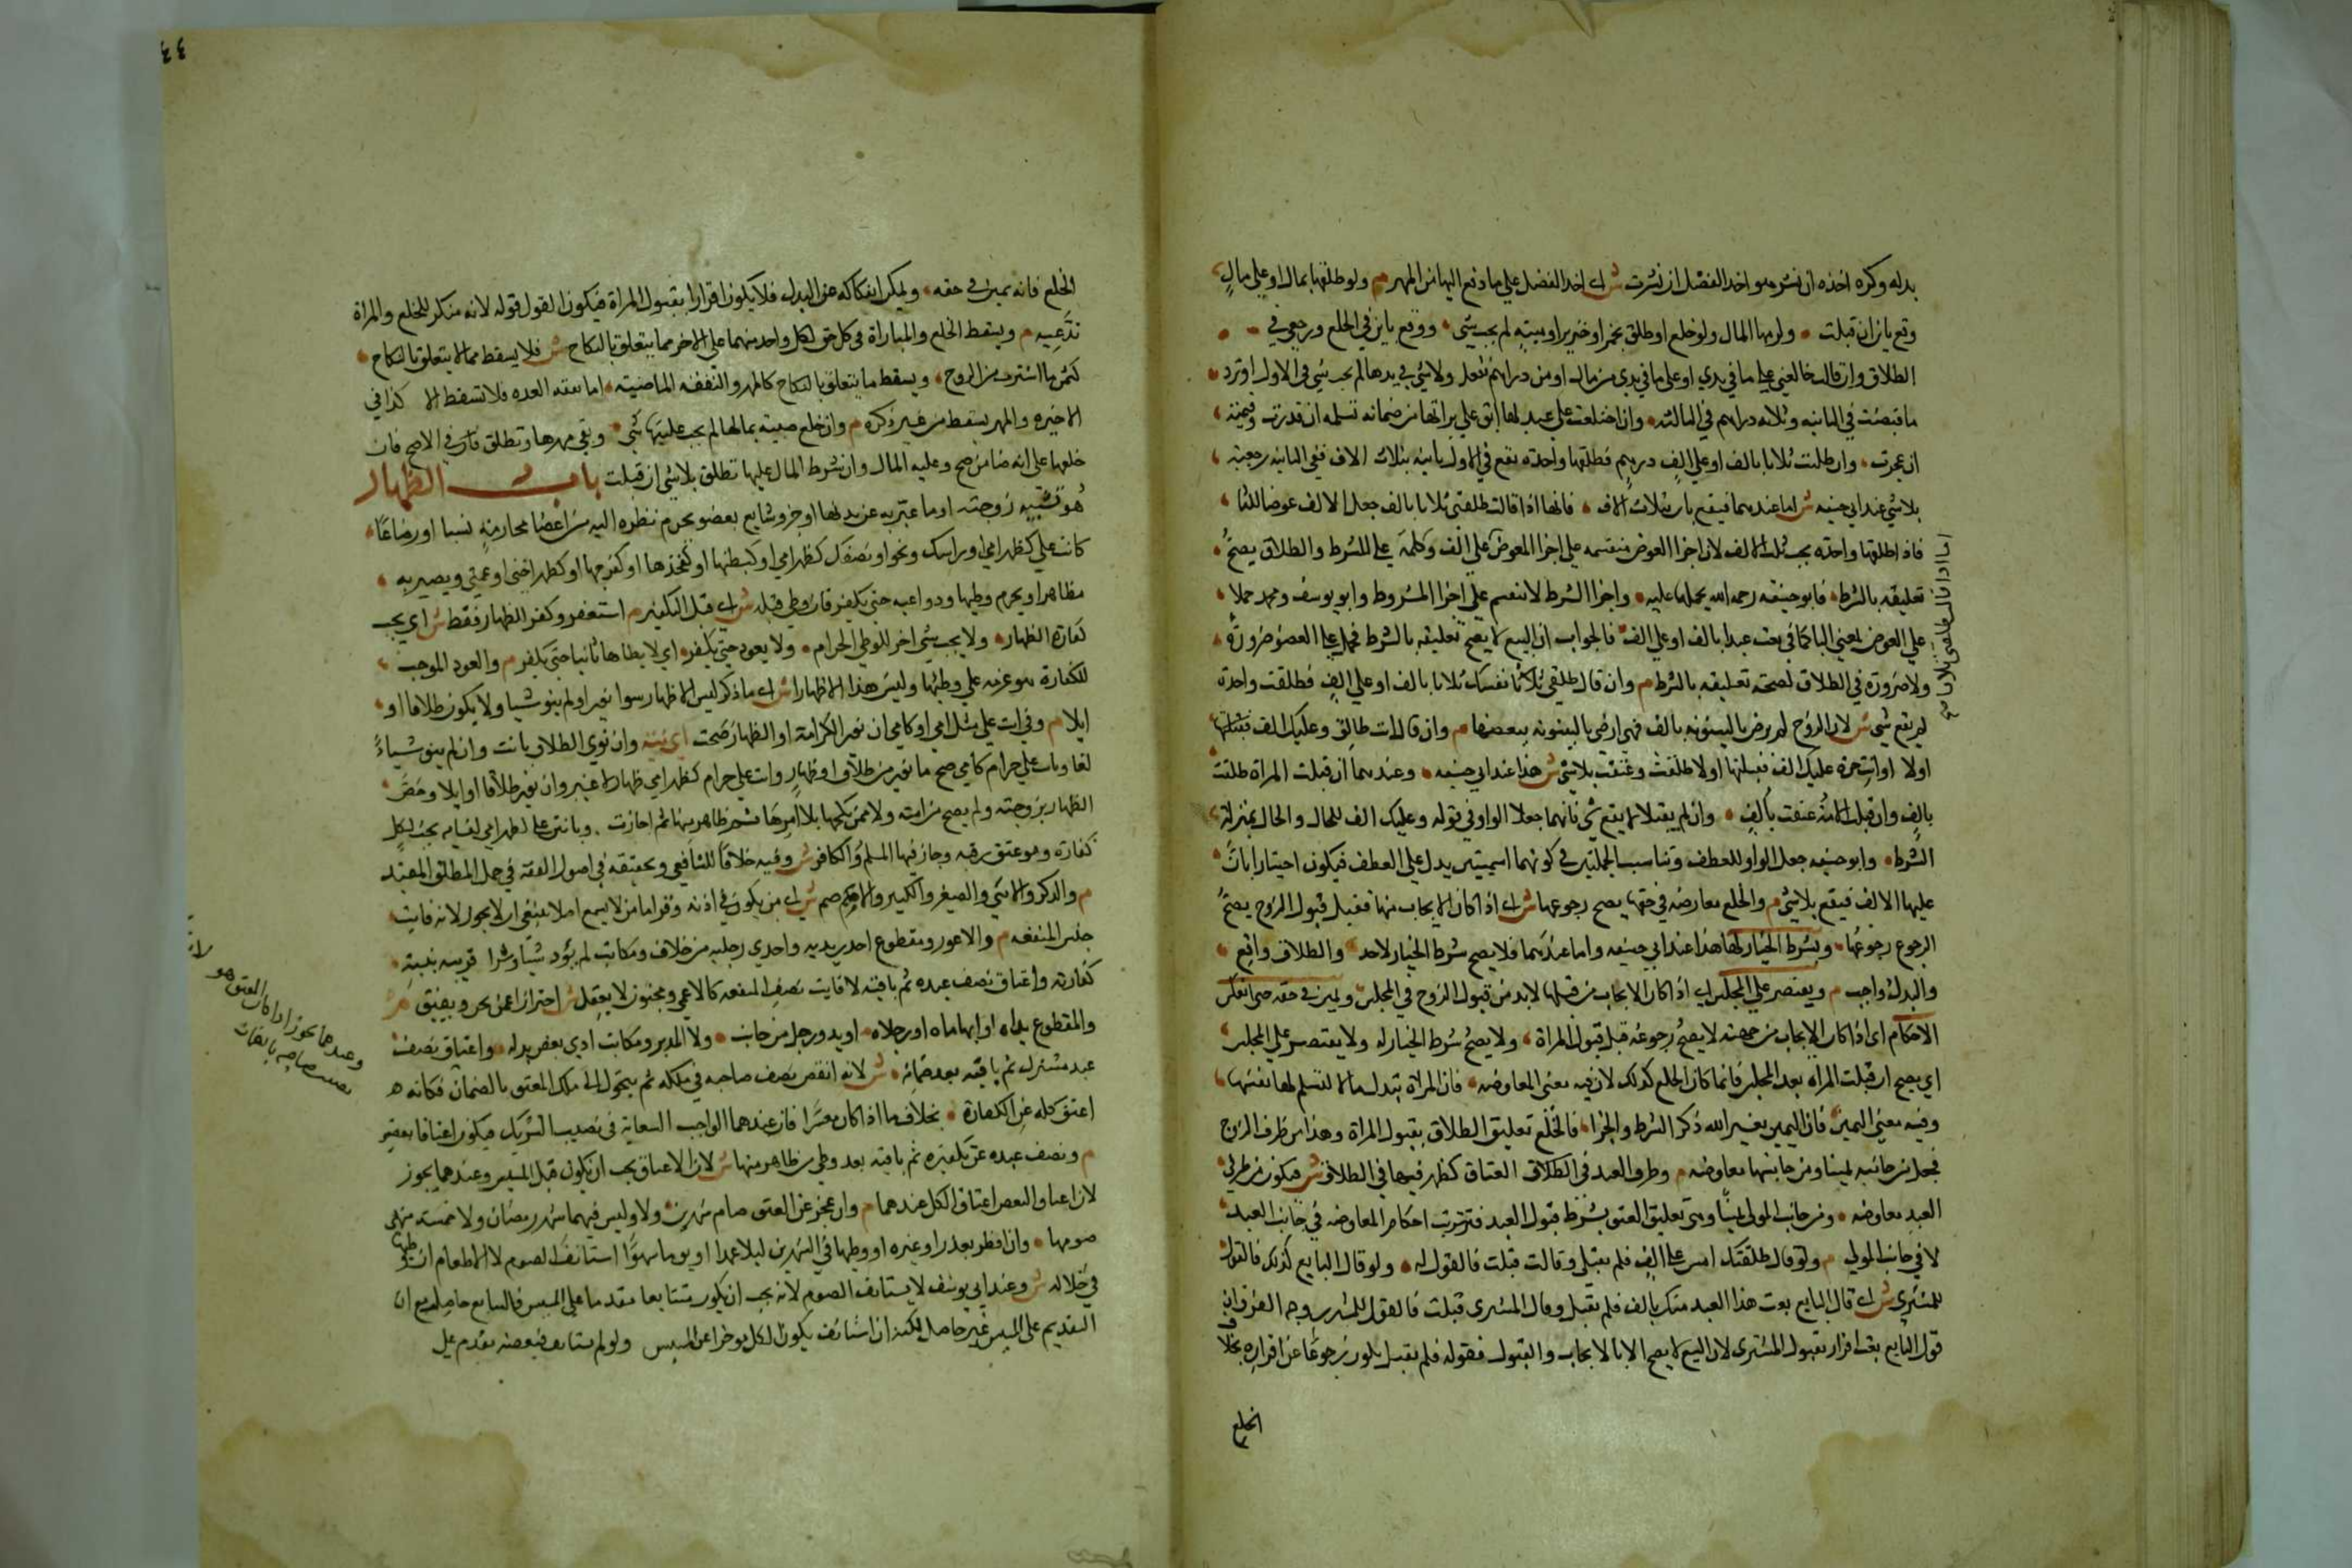 بدله وكره اخذه ان نشز هو واخذ الفضل ان نشزت ش اي اخذ الفضل علي ما دفع اليها من المهر م ولو طلقها بمال او علي مال
وقع باين ان قبلت ولزمها المال ولو خلع او طلق بخمر او خنزير او ميته لم يجب شي ووقع باين في الخلع ورجعي في
الطلاق وان قالت خالعني علي ما في يدي او علي ما في يدي من مال او من دراهم ففعل ولا شي في يدها لم يجب شي في الاول وترد
ما قبضت في الثانيه وثلاثه دراهم في الثالثه وان اختلعت علي عبد لها ابق علي براتها من ضمانه تسلمه ان قدرت وقيمته
ان عجزت وان طلبت ثلاثا بالف او علي الف درهم فطلقها واحدة تقع في الاول باينه بثلث الالف وفي الثانيه رجعيه
بلا شي عند ابي حنيفه ش اما عندهما فيقع باين بثلث الالف فانها اذا قالت طلقني ثلاثا بالف جعل الالف عوضا للثلاث
فاذا طلقها واحدة يجب ثلث الالف لان اجزا العوض منقسمه علي اجزا المعوض اما اذا قالت طلقني ثلاثا علي الف وكلمة علي للشرط والطلاق يصح
تعليقه بالشرط فابو حنيفه رحمه الله يحملها عليه واجزا الشرط لا تنقسم علي اجزا المشروط وابو يوسف ومحمد حملا
علي العوض بمعني البا كما في بعت عبدا بالف او علي الف فالجواب ان البيع لا يصح تعليقه بالشرط فحمل علي العوض ضرورة
ولا ضرورة في الطلاق لصحة تعليقه بالشرط م وان قال طلقي نفسك ثلاثا بالف او علي الف فطلقت واحدة
لم يقع شي ش لان الزوج لم يرض بالبينونه بالف فهي ارضي بالبينونه ببعضها م وان قال انت طالق وعليك الف فقبلتها
اولا او انت حرة وعليك الف فقبلتها اولا طلقت وعتقت بلا شي ش هذا عند ابي حنيفه وعندهما ان قبلت المراة طلقت
بالف وان قبلت الامة عتقت بالف وان لم يقبلا لا يقع شي فانهما جعلا الواو في قوله وعليك الف للحال والحال بمنزلة
الشرط وابو حنيفه جعل الواو للعطف وتناسب الجملتين في كونهما اسميتين يدل علي العطف فيكون اخبارا بان
عليها الالف فيقع بلا شي م والخلع معاوضه في حقها يصح رجوعها ش اي اذا كان الايجاب منها فقبل قبول الزوج يصح
الرجوع رجوعها وبشرط الخيار لها هذا عند ابي حنيفه واما عندهما فلا يصح شرط الخيار لاحد والطلاق واقع
والبدل واجب م ويقتصر علي المجلس اي اذا كان الايجاب من قبلها لا بد من قبول الزوج في المجلس ويمين في حقه حتي انعكس
الاحكام اي اذا كان الايجاب من جهته لا يصح رجوعه قبل قبول المراة ولا يصح شرط الخيار له ولا يقتصر علي المجلس
اي يصح ان قبلت المراه بعد المجلس فانما كان الخلع كذلك لان فيه معني المعاوضه فان المراة تبذل مالا لتسلم لها نفسها
وفيه معني اليمين فان اليمين بغير الله ذكر الشرط والجزا فالخلع تعليق الطلاق بقبول المراة وهذا من طرف الزوج
فجعل من جانبه يمينا ومن جانبها معاوضه م وطرف العبد في العتاق كطرفها في الطلاق ش فيكون من طرف
العبد معاوضه ومن جانب المولي يمينا وهي تعليق العتق بشرط قبول العبد فترتبت احكام المعاوضه في جانب العبد
لا في جانب المولي م ولو قال طلقتك امس علي الف فلم تقبلي وقالت قبلت فالقول له ولو قال البايع كذلك فالقول
للمشتري ش اي قال البايع بعت هذا العبد منك بالف فلم تقبل وقال المشتري قبلت فالقول للمشتري وجه الفرق ان
قول البايع بعت اقرار بقبول المشتري لان البيع لا يصح الا بالايجاب والقبول فقوله فلم تقبل يكون رجوعا عن اقراره بخلاف
الخلع
٤٤
الخلع فانه يمين في حقه ويمكن انفكاكه عن البدل فلا يكون اقرارا بقبول المراة فيكون القول قوله لانه منكر للخلع والمراة
تدعيه م ويسقط الخلع والمباراة كل حق لكل واحد منهما علي الاخر مما يتعلق بالنكاح ش فلا يسقط مما لا يتعلق بالنكاح
كثمن ما اشترت من الزوج ويسقط ما يتعلق بالنكاح كالمهر والنفقه الماضيه اما نفقه العده فلا تسقط الا كذا في
الاخيره والمهر يسقط من غير ذكره م وان خلع صبيته بمالها لم يجب عليها شي وبقي مهرها وتطلق في الاصح فان
خلعها علي انه ضامن صح وعليه المال وان شرط المال عليها تطلق بلا شي ان قبلت باب الظهار
هو تشبيه زوجته او ما عبر به عن بدنها او جزو شايع بعضو يحرم نظره اليه من اعضا محارمه نسبا او رضاعا
كانت علي كظهر امي او راسك ونحوه او نصفك كظهر امي او كبطنها او كفخذها او كفرجها او كظهر اختي او عمتي ويصير به
مظاهرا ويحرم وطيها ودواعيه حتي يكفر فان وطي قبله ش اي قبل التكفير م استغفر وكفر للظهار فقط ش اي يجب
كفارة الظهار ولا يجب شي اخر للوطي الحرام ولا يعود حتي يكفر اي لا يطاها ثانيا حتي يكفر م والعود الموجب
للكفارة هو عزمه علي وطئها وليس هذا الا ظهارا ش اي ما ذكر ليس الا ظهار سوا نوي او لم ينو شيا ولا يكون طلاقا او
ايلا م وفي انت علي مثل امي او كامي ان نوي الكرامة او الظهار صحت اي نيته وان نوي الطلاق بانت وان لم ينو شياً
لغا وبانت علي حرام كامي صح ما نوي من طلاق او ظهار وانت علي حرام كظهر امي ظهار لا غير وان نوي طلاقا او ايلا وخص
الظهار بزوجته ولم يصح من امته ولا ممن نكحها بلا امرها ثم ظاهر منها ثم اجازت وبانتن علي كظهر امي لنسايه يجب لكل
كفارة وهو عتق رقبه وجاز فيها المسلم والكافر ش وفيه خلاف الشافعي وتحقيقه في اصول الفقه في حمل المطلق علي المقيد
م والذكر والانثي والصغير والكبير والاصم ش اي من يكون في اذنه وقر اما من لا يسمع اصلا ينبغي ان لا يجوز لانه فايت
جنس المنفعه م والاعور ومقطوع احدي يديه واحدي رجليه من خلاف ومكاتب لم يود شيا وشرا قريبه بنية
كفارته واعتاق نصف عبده ثم باقيه لا فايت جنس المنفعه كالاعمي ومجنون لا يعقل ش احتراز عمن يجن ويفيق م
والمقطوع يداه او ابهاماه او رجلاه او يد ورجل من جانب ولا المدبر ومكاتب ادي بعض بدله واعتاق نصف
عبد مشترك ثم باقيه بعد ضمانه ش لانه انتقص نصف صاحبه في ملكه ثم يتحول الي ملك المعتق بالضمان فكانه
اعتق كله عن الكفارة بخلاف ما اذا كان معسرا فان عندهما الواجب السعاية في نصيب الشريك فيكون اعتاقا بعوض
م ونصف عبده عن تكفيره ثم باقيه بعد وطي من ظاهر منها ش لان الاعتاق يجب ان يكون قبل المسيس وعندهما يجوز
لان اعتاق البعض اعتاق الكل عندهما م وان عجز عن العتق صام شهرين ولا وليس فيهما شهر رمضان ولا خمسة نهي
صومها وان افطر بعذر او غيره او وطيها في الشهرين ليلا عمدا او يوما سهوا استانف الصوم لا الاطعام ان وطيها
في خلاله ش وعند ابي يوسف لا يستانف الصوم لانه يجب ان يكون متتابعا مقدما علي المسيس فالتتابع حاصل مع ان
التقديم علي المسيس غير حاصل لكنه ان استانف يكون الكل موخرا عن المسيس ولو لم يستانف فبعضه مقدم علي
وعندهما يجوز اذا كان المعتق هو